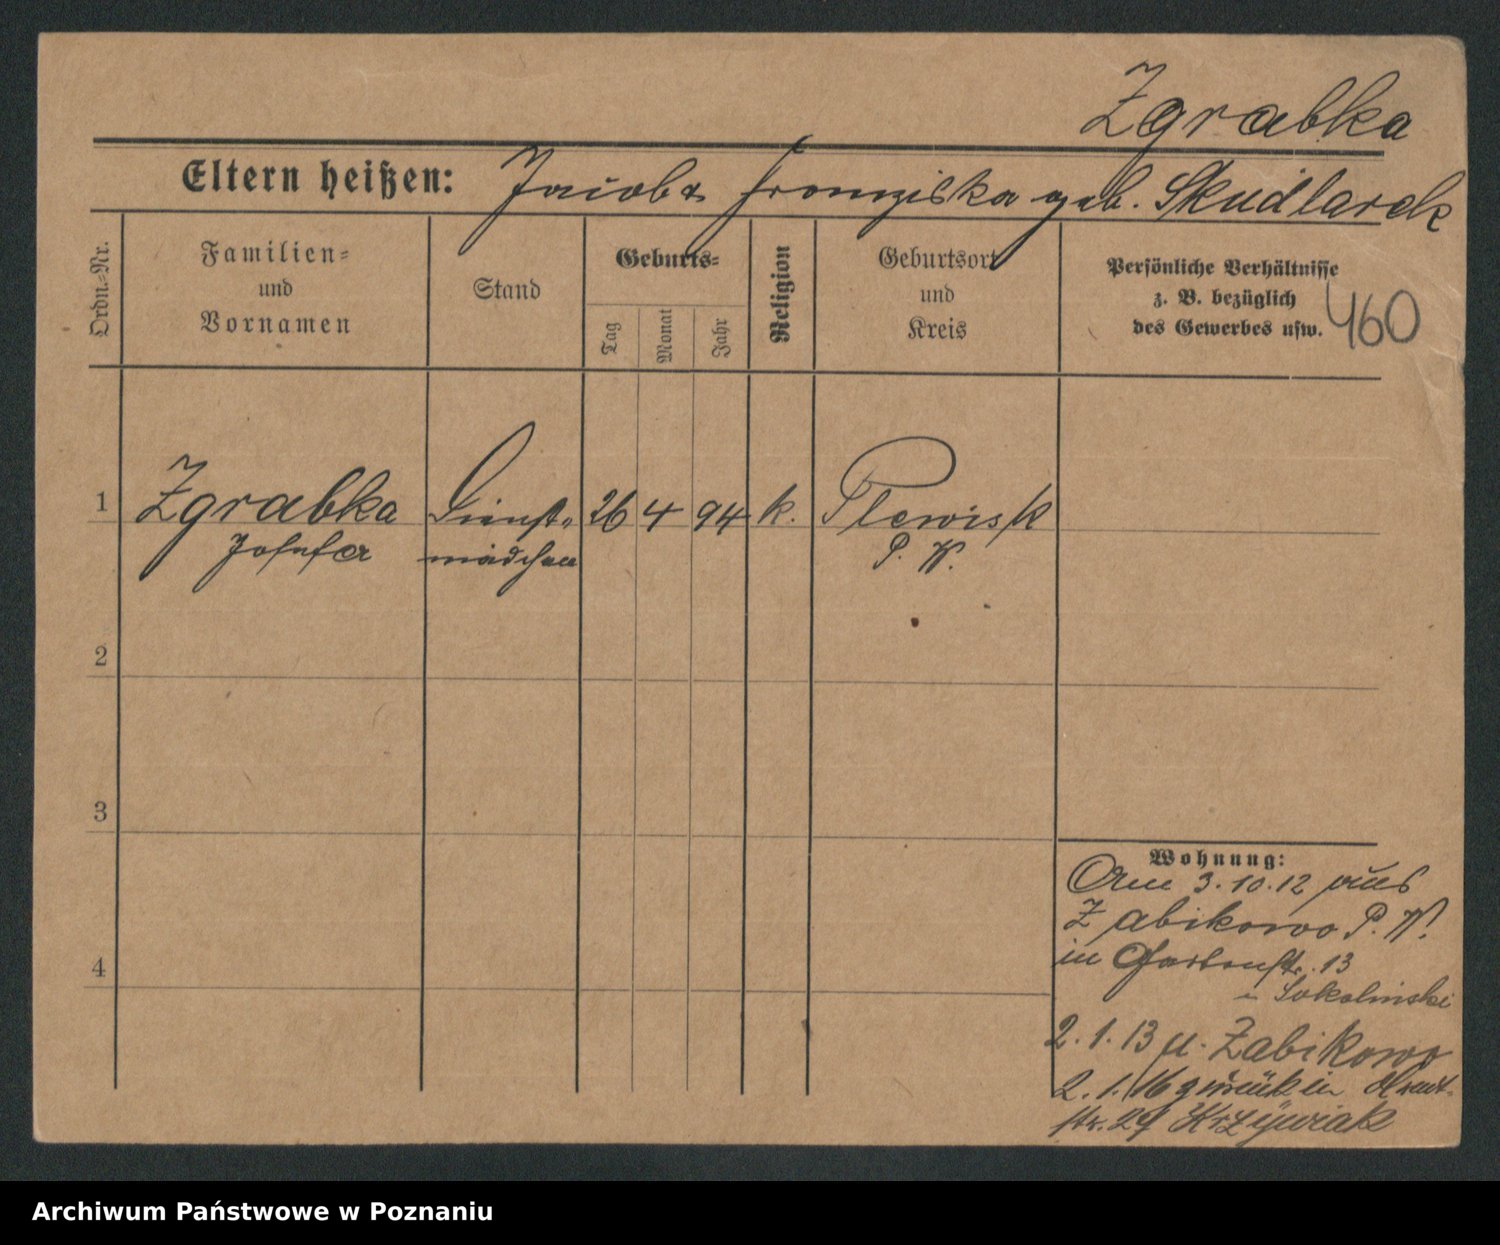 Zgrabka
Eltern heißen: Jacob & Franziska geb. Skudlarek
Ordn.-Nr.
Familien-
und
Vornamen
Stand
Geburts-
Tag
Monat
Jahr
Religion
Geburtsort
und
Kreis
Persönliche Verhältnisse
z. B. bezüglich
des Gewerbes usw.
460
1 Zgrabka Dienst- 26 4 94 k. Plewisk
Josefa mädchen P. W.
2
3
4
Wohnung:
Am 3.10.12 aus
Zabikowo P. W.
in Gartenstr. 13
Sokolinski
2.1.13 n. Zabikowo
2.1.16 zurück in
str. 29 Krzywiak
Archiwum Państwowe w Poznaniu